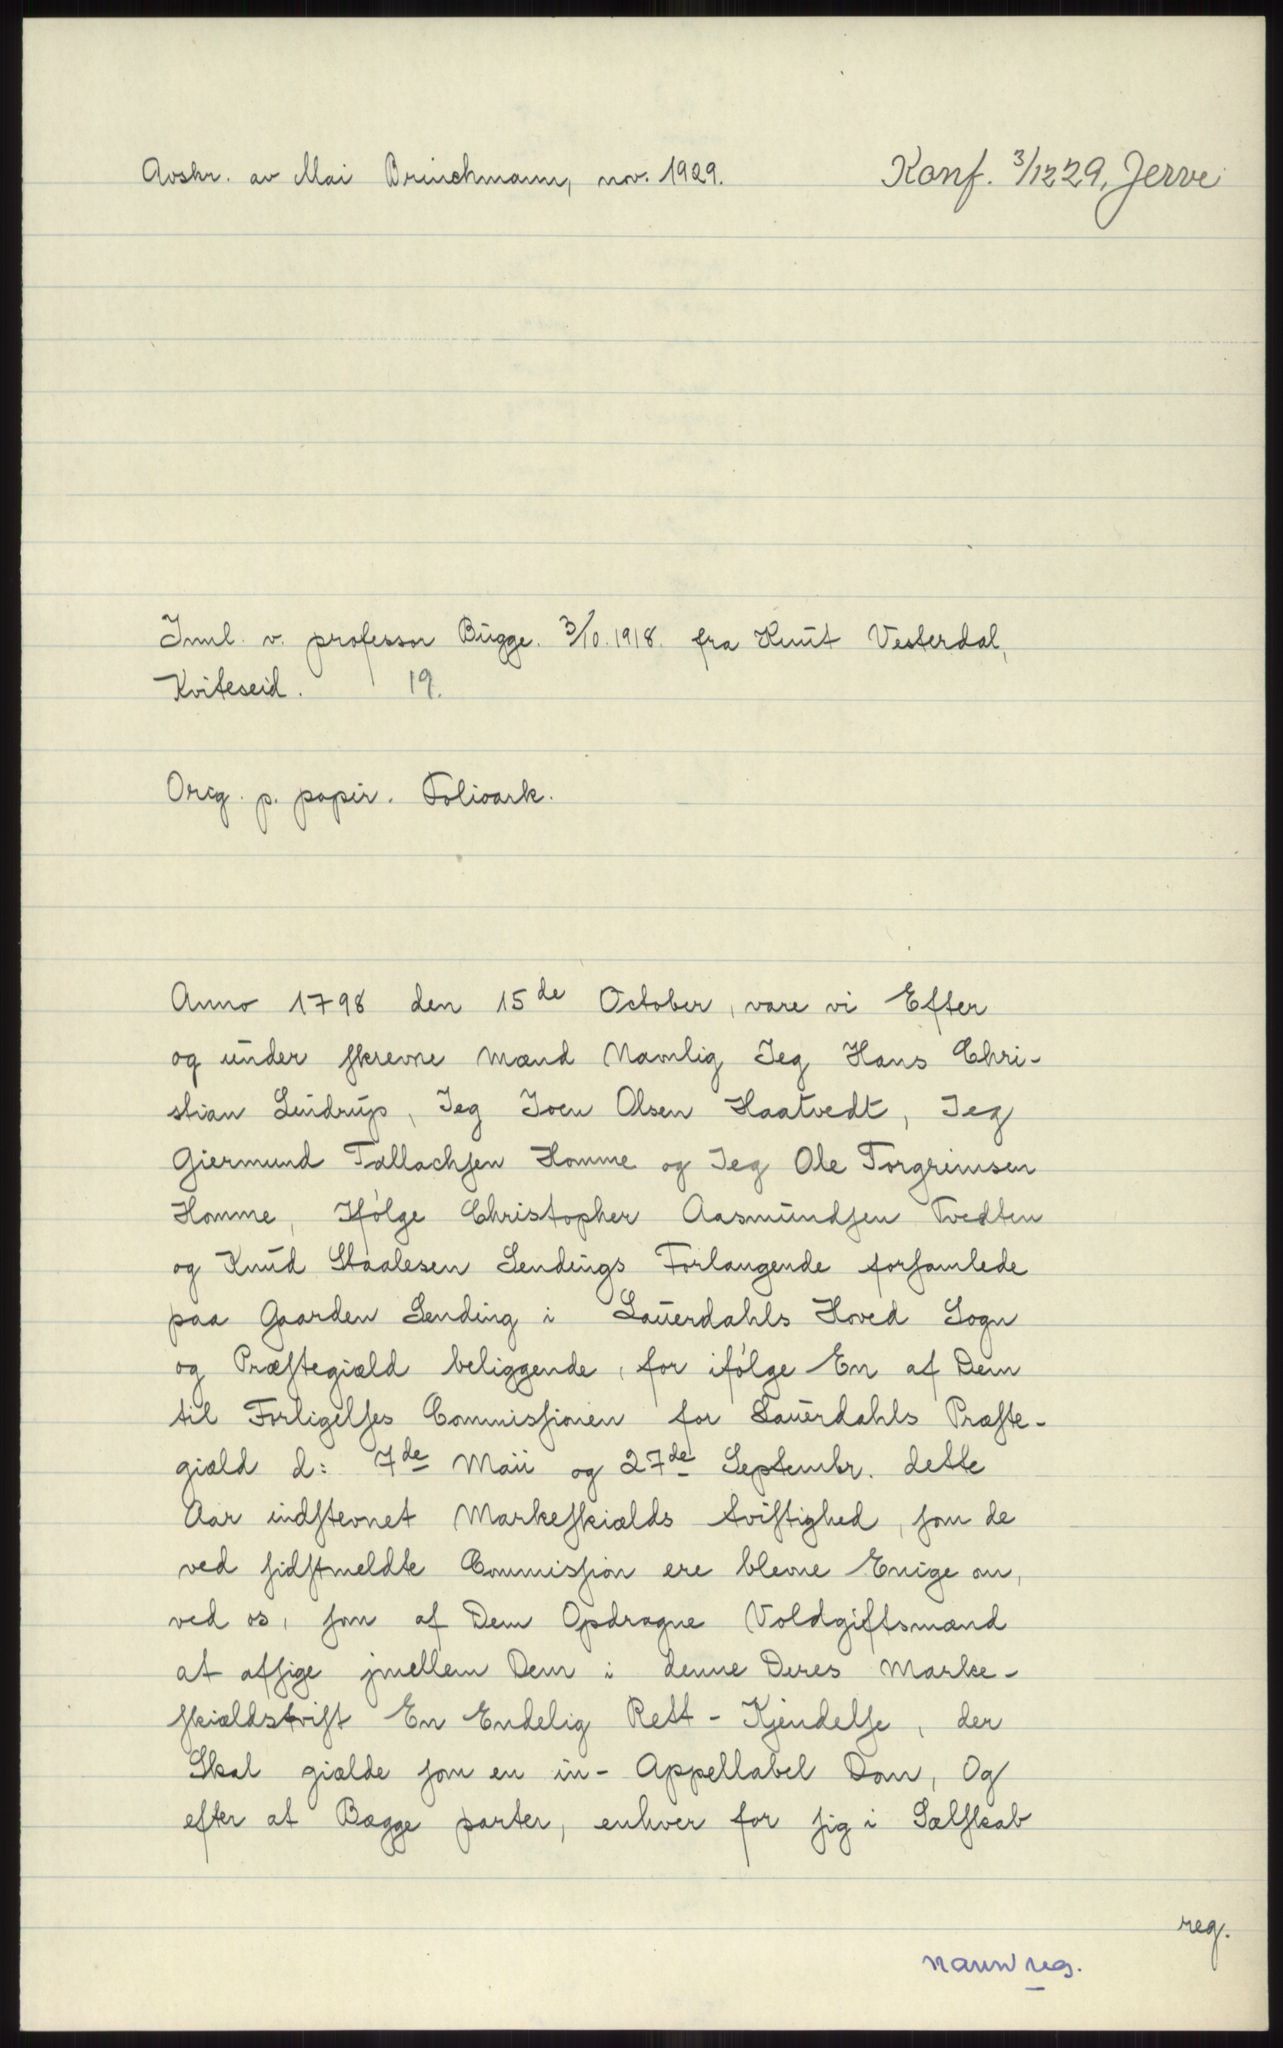 Avskr. av Mai Brinchmann, nov. 1929.
Konf. 3/12 29, Jerve
Innl. v. professor Bugge. 3/10.1918. fra Knut Vesterdal,
Kviteseid. 19.
Orig. p. papir. Folioark.
Anno 1798 den 15de October, vare vi Efter
og under skrevne Mænd Navnlig Jeg Hans Chri-
stian Lindrup, Jeg Joen Olsen Haatvedt, Jeg
Giermund Tallachsen Homme og Jeg Ole Torgrimsen
Homme, Ifølge Christopher Aasmundsen Tvedten
og Knud Staalesen Sendings Forlangende forsamlede
paa Gaarden Sending i Laurdahls Hoved Sogn
og Præstegiæld beliggende, for ifølge En af Dem
til Forligelses Commissionen for Laurdahls Præste-
giæld d: 7de Maii og 27de Septembr. dette
Aar indstevnet Markeskiælds tvistighed, som de
ved sidstmeldte Commission ere blevne Enige om,
ved os, som af Dem Opdragne Voldgiftsmænd
at afsige jmellem Dem i denne Deres Marke-
skiældstrift En Endelig Rett-Kjendelse, der
Skal giælde som en in-Appellabel Dom, Og
efter at Bægge parter, enhver for sig i Sælskab
reg.
navnreg.